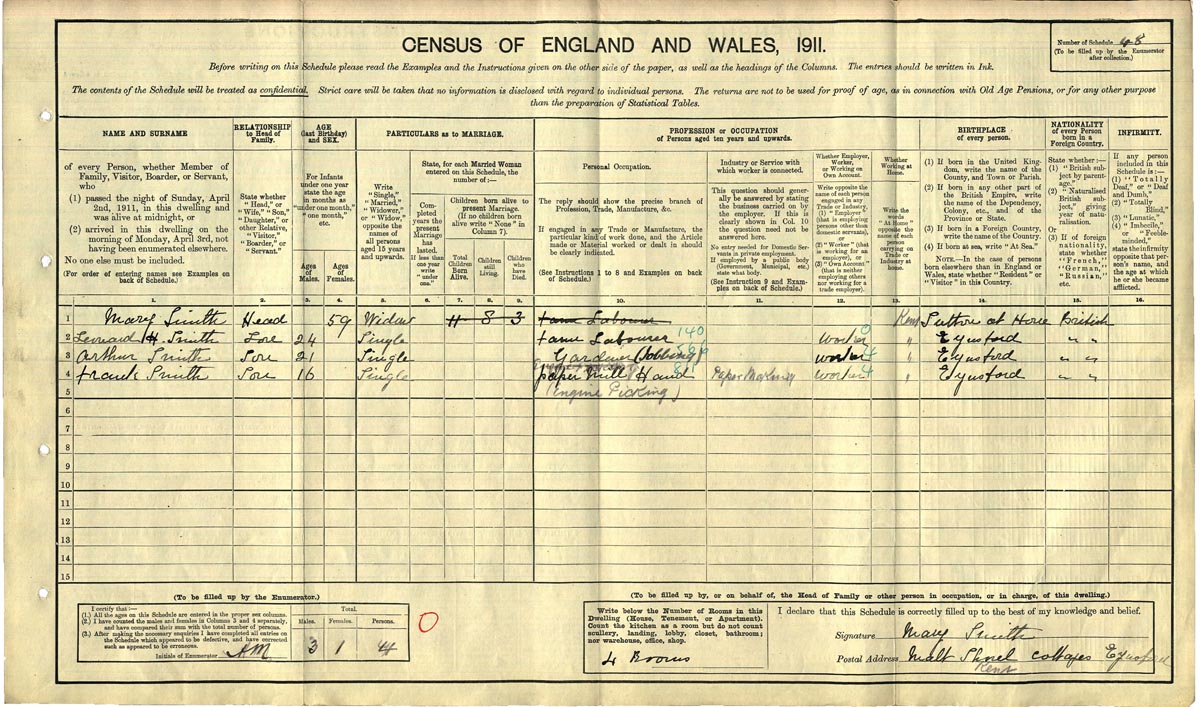 CENSUS OF ENGLAND AND WALES, 1911.
Number of Schedule 48
(To be filled up by the Enumerator after collection.)
Before writing on this Schedule please read the Examples and the Instructions given on the other side of the paper, as well as the headings of the Columns. The entries should be written in Ink.
The contents of the Schedule will be treated as confidential. Strict care will be taken that no information is disclosed with regard to individual persons. The returns are not to be used for proof of age, as in connection with Old Age Pensions, or for any other purpose
than the preparation of Statistical Tables.
NAME AND SURNAME
of every Person, whether Member of
Family, Visitor, Boarder, or Servant,
who
(1) passed the night of Sunday, April
2nd, 1911, in this dwelling and
was alive at midnight, or
(2) arrived in this dwelling on the
morning of Monday, April 3rd, not
having been enumerated elsewhere.
No one else must be included.
(For order of entering names see Examples on
back of Schedule.)
RELATIONSHIP
to Head of
Family.
State whether
"Head," or
"Wife," "Son,"
"Daughter," or
other Relative,
"Visitor,"
"Boarder," or
"Servant."
AGE
(last Birthday)
and SEX.
For Infants
under one year
state the age
in months as
"under one month,"
"one month,"
etc.
Ages
of
Males.
Ages
of
Females.
PARTICULARS as to MARRIAGE.
Write
"Single,"
"Married,"
"Widower,"
or "Widow,"
opposite the
names of
all persons
aged 15 years
and upwards.
State, for each Married Woman
entered on this Schedule, the
number of:—
Completed
years the
present
Marriage
has
lasted.
If less than
one year
write
"under
one."
Children born alive to
present Marriage.
(If no children
born alive write
"None" in
Column 7).
Total
Children
Born
Alive.
Children
still
Living.
Children
who
have
Died.
PROFESSION or OCCUPATION
of Persons aged ten years and upwards.
Personal Occupation.
The reply should show the precise branch of
Profession, Trade, Manufacture, &c.
If engaged in any Trade or Manufacture, the
particular kind of work done, and the Article
made or Material worked or dealt in should
be clearly indicated.
(See Instructions 1 to 8 and Examples on back
of Schedule.)
Industry or Service with
which worker is connected.
This question should generally
be answered by stating
the business carried on by
the employer. If this is
clearly shown in Col. 10
the question need not be
answered here.
No entry needed for Domestic Servants
in private employment.
If employed by a public body
(Government, Municipal, etc.)
state what body.
(See Instruction 9 and Examples
on back of Schedule.)
Whether Employer,
Worker,
or Working on
Own Account.
Write opposite the
name of each person
engaged in any
Trade or Industry,
(1) "Employer"
(that is employing
persons other than
domestic servants),
or
(2) "Worker" (that
is working for an
employer), or
(3) "Own Account"
(that is neither
employing others
nor working for a
trade employer).
Whether
Working at
Home.
Write the
words
"At Home"
opposite the
name of each
person
carrying on
Trade or
Industry at
home.
BIRTHPLACE
of every person.
(1) If born in the United Kingdom,
write the name of the
County, and Town or Parish.
(2) If born in any other part of
the British Empire, write
the name of the Dependency,
Colony, etc., and of the
Province or State.
(3) If born in a Foreign Country,
write the name of the Country.
(4) If born at sea, write "At Sea."
NOTE.—In the case of persons
born elsewhere than in England or
Wales, state whether "Resident" or
"Visitor" in this Country.
NATIONALITY
of every Person
born in a
Foreign Country.
State whether:—
(1) "British
subject by parentage."
(2) "Naturalised
British subject,"
giving
year of naturalisation.
Or
(3) If of foreign
nationality,
state whether
"French,"
"German,"
"Russian,"
etc.
INFIRMITY.
If any person
included in this
Schedule is:—
(1) "Totally
Deaf," or "Deaf
and Dumb,"
(2) "Totally
Blind,"
(3) "Lunatic,"
(4) "Imbecile,"
or "Feeble-minded,"
state the infirmity
opposite that person's
name, and
the age at which
he or she became
afflicted.
1. 2. 3. 4. 5. 6. 7. 8. 9. 10. 11. 12. 13. 14. 15. 16.
1 Mary Smith Head 59 Widow 11 8 3 Farm Labourer Kent Sutton at Hone British
2 Leonard H. Smith Son 24 Single Farm Labourer 140 Worker 0 " Eynsford " "
3 Arthur Smith Son 21 Single Gardener (Jobbing) Worker 4 " Eynsford " "
4 Frank Smith Son 16 Single paper Mill Hand Paper Making Worker 4 " Eynsford " "
5 (Engine Picking)
6
7
8
9
10
11
12
13
14
15
(To be filled up by the Enumerator.)
I certify that:—
(1.) All the ages on this Schedule are entered in the proper sex columns.
(2.) I have counted the males and females in Columns 3 and 4 separately,
and have compared their sum with the total number of persons.
(3.) After making the necessary enquiries I have completed all entries on
the Schedule which appeared to be defective, and have corrected
such as appeared to be erroneous.
Initials of Enumerator AM
Total.
Males. Females. Persons.
3 1 4
0
(To be filled up by, or on behalf of, the Head of Family or other person in occupation, or in charge, of this dwelling.)
Write below the Number of Rooms in this
Dwelling (House, Tenement, or Apartment).
Count the kitchen as a room but do not count
scullery, landing, lobby, closet, bathroom;
nor warehouse, office, shop.
4 Rooms
I declare that this Schedule is correctly filled up to the best of my knowledge and belief.
Signature Mary Smith
Postal Address Malt Shovel cottages Eynsford
Kent